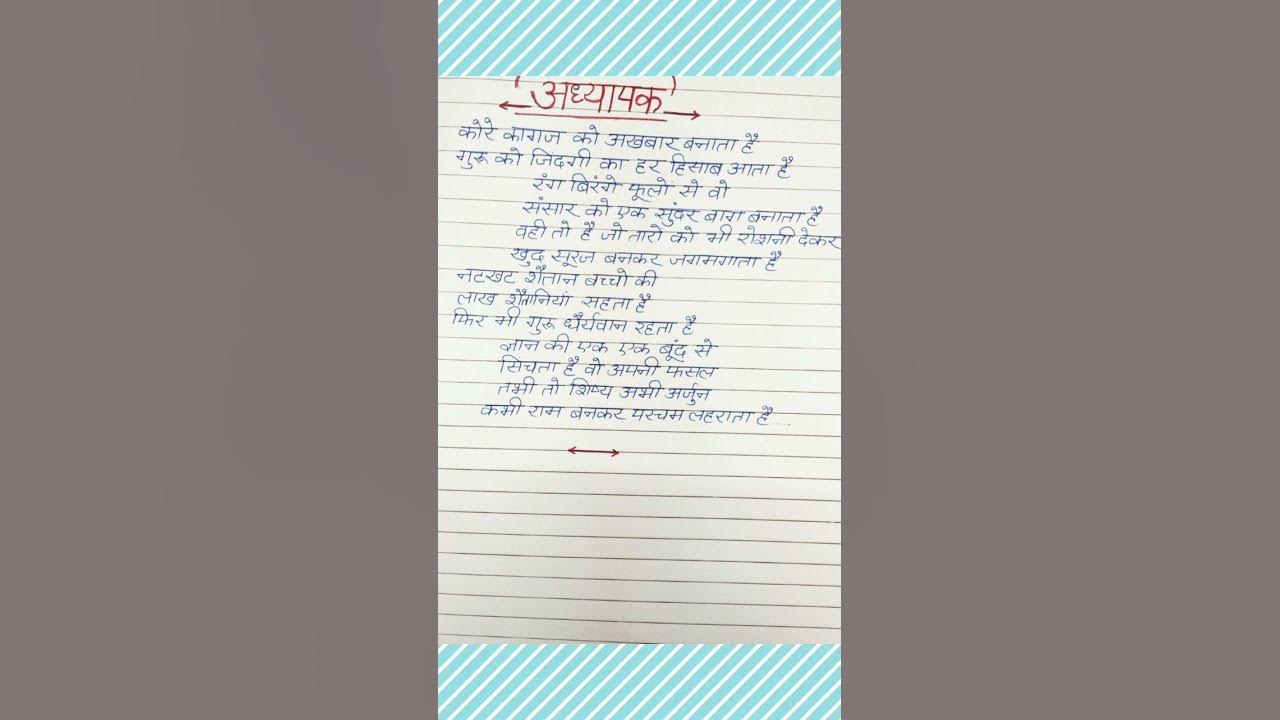 अध्यापक
कोरे कागज को अखबार बनाता है
गुरू को जिंदगी का हर हिसाब आता है
रंग बिरंगे फूलों से वो
संसार को एक सुंदर बाग बनाता है
वही तो है जो तारो को भी रोशनी देकर
खुद सूरज बनकर जगमगाता है
नटखट शैतान बच्चो की
लाख शैतानियां सहता है
फिर भी गुरू धैर्यवान रहता है
ज्ञान की एक एक बूंद से
सिंचता है वो अपनी फसल
तभी तो शिष्य अभी अर्जुन
कभी राम बनकर परचम लहराता है.....